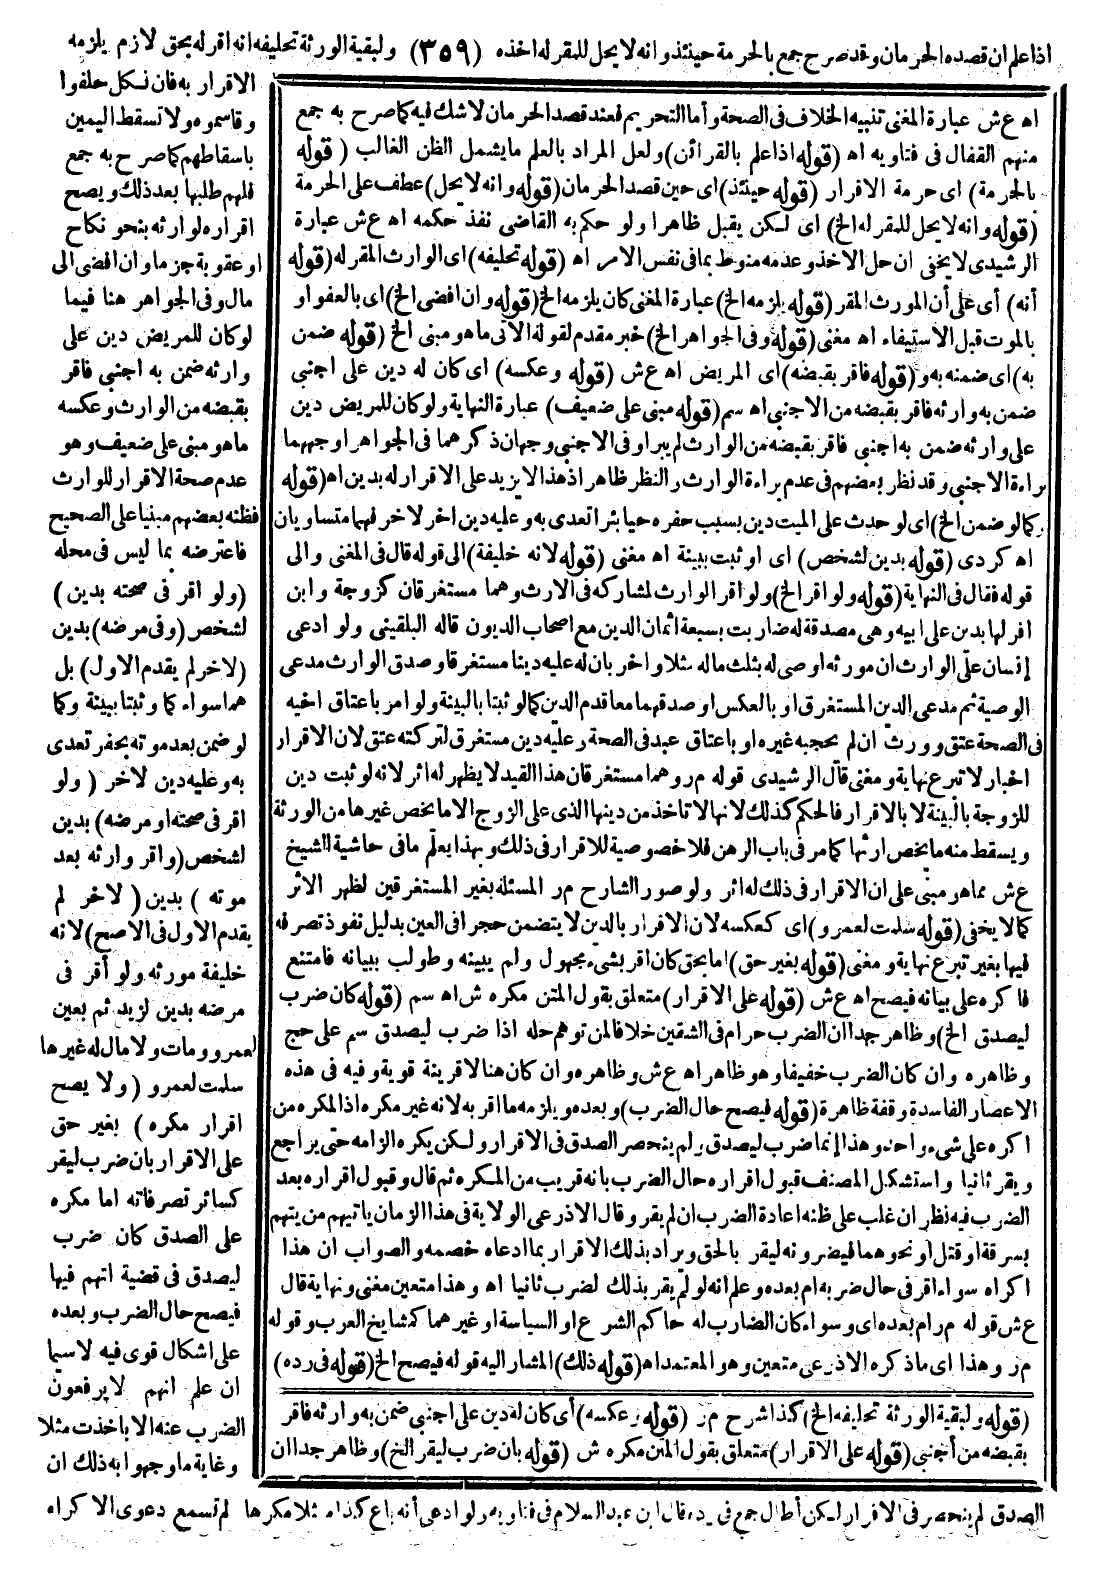 اذا علم ان قصده الحرمان وقد صرح جمع بالحرمة حينئذ وانه لا يحل للمقر له اخذه (٣٥٩) ولبقية الورثة تحليفه انه اقر له بحق لازم يلزمه
الاقرار به فان نكل حلفوا
وقاسموه ولا تسقط اليمين
باسقاطهم كما صرح به جمع
فلهم طلبها بعد ذلك ويصح
اقراره لوارثه بنحو نكاح
او عقوبة جزما وان افضى الى
مال وفى الجواهر هنا فيما
لو كان للمريض دين على
وارثه ضمن به اجنبي فاقر
بقبضه من الوارث وعكسه
ما هو مبنى على ضعيف وهو
عدم صحة الاقرار للوارث
فظنه بعضهم مبنيا على الصحيح
فاعترضه بما ليس فى محله
(ولو اقر فى صحته بدين)
لشخص (وفى مرضه) بدين
(لآخر لم يقدم الاول) بل
هما سواء كما وثبتا ببينة وكما
لو ضمن بعد موته بحفر تعدى
به وعليه دين لآخر (ولو
اقر فى صحته او مرضه) بدين
لشخص (واقر وارثه بعد
موته) بدين (لآخر لم
يقدم الاول فى الاصح) لانه
خليفة مورثه ولو أقر فى
مرضه بدين لزيد ثم بعين
لعمرو ومات ولا مال له غيرها
سلمت لعمرو (ولا يصح
اقرار مكره) بغير حق
على الاقرار بان ضرب ليقر
كسائر تصرفاته اما مكره
على الصدق كان ضرب
ليصدق فى قضية اتهم فيها
فيصح حال الضرب وبعده
على اشكال قوى فيه لا سيما
ان علم انهم لا يرفعون
الضرب عنه الا باخذت مثلا
وغاية ما وجهوا به ذلك ان
الصدق لم ينحصر فى الاقرار لكن أطال جمع فى رده قال ابن عبد السلام فى فتاويه ولو ادعى أنه باع كذا مثلا مكرها لم تسمع دعوى الاكراه
اه ع ش عبارة المغنى تنبيه الخلاف فى الصحة وأما التحريم فعند قصد الحرمان لا شك فيه كما صرح به جمع
منهم القفال فى فتاويه اه (قوله اذا علم بالقرائن) ولعل المراد بالعلم ما يشمل الظن الغالب (قوله
بالحرمة) اى حرمة الاقرار (قوله حينئذ) اى حين قصد الحرمان (قوله وانه لا يحل) عطف على الحرمة
(قوله وانه لا يحل للمقر له الخ) اى لكن يقبل ظاهرا ولو حكم به القاضى نفذ حكمه اه ع ش عبارة
الرشيدى لا يخفى ان حل الاخذ وعدمه منوط بما فى نفس الامر اه (قوله تحليفه) اى الوارث المقر له (قوله
أنه) أى على أن المورث المقر (قوله يلزمه الخ) عبارة المغنى كان يلزمه الخ (قوله وان افضى الخ) اى بالعفو او
بالموت قبل الاستيفاء اه مغنى (قوله وفى الجواهر الخ) خبر مقدم لقوله الآتى ما هو مبنى الخ (قوله ضمن
به) اى ضمنه به و(قوله فاقر بقبضه) اى المريض اه ع ش (قوله وعكسه) اى كان له دين على اجنبي
ضمن به وارثه فاقر بقبضه من الاجنبى اه سم (قوله مبنى على ضعيف) عبارة النهاية ولو كان للمريض دين
على وارثه ضمن به اجنبي فاقر بقبضه من الوارث لم يبرا وفى الاجنبى وجهان ذكرهما فى الجواهر اوجههما
براءة الاجنبى وقد نظر بعضهم فى عدم براءة الوارث والنظر ظاهر اذ هذا لا يزيد على الاقرار له بدين اه (قوله
وكما لو ضمن الخ) اى لو حدث على الميت دين بسبب حفره حيا بئرا تعدى به وعليه دين اخر لآخر فهما متساويان
اه كردى (قوله بدين لشخص) اى او ثبت ببينة اه مغنى (قوله لانه خليفة) الى قوله قال فى المغنى والى
قوله فقال فى النهاية (قوله ولو اقر الخ) ولو اقر الوارث لمشاركه فى الارث وهما مستغرقان كزوجة وابن
اقر لها بدين على ابيه وهى مصدقة له ضاربت بسبعة اثمان الدين مع اصحاب الديون قاله البلقينى ولو ادعى
إنسان على الوارث ان مورثه اوصى له بثلث ماله مثلا واخر بان له عليه دينا مستغرقا وصدق الوارث مدعى
الوصية ثم مدعى الدين المستغرق او بالعكس او صدقهما معا قدم الدين كما لو ثبتا بالبينة ولو امر باعتاق اخيه
فى الصحة عتق وورث ان لم يحجبه غيره او باعتاق عبد فى الصحة وعليه دين مستغرق لتركته عتق لان الاقرار
اخبار لا تبرع نهاية ومغنى قال الرشيدى قوله م ر وهما مستغرقان هذا القيد لا يظهر له اثر لانه لو ثبت دين
للزوجة بالبينة لا بالاقرار فالحكم كذلك لانها لا تاخذ من دينها الذى على الزوج الا ما يخص غيرها من الورثة
ويسقط منه ما يخص ارثها كما مر فى باب الرهن فلا خصوصية للاقرار فى ذلك وبهذا يعلم ما فى حاشية الشيخ
ع ش مما هو مبنى على ان الاقرار فى ذلك له اثر ولو صور الشارح م ر المسئلة بغير المستغرقين لظهر الاثر
كما لا يخفى (قوله سلمت لعمرو) اى كعكسه لان الاقرار بالدين لا يتضمن حجرا فى العين بدليل نفوذ تصرفه
فيها بغير تبرع نهاية ومغنى (قوله بغير حق) اما بحق كان اقر بشىء مجهول ولم يبينه وطولب ببيانه فامتنع
فاكره على بيانه فيصح اه ع ش (قوله على الاقرار) متعلق بقول المتن مكره ش اه سم (قوله كان ضرب
ليصدق الخ) وظاهر جدا ان الضرب حرام فى الشقين خلافا لمن توهم حله اذا ضرب ليصدق سم على حج
وظاهره وان كان الضرب خفيفا وهو ظاهر اه ع ش وظاهره وان كان هنالا قرينة قوية وفيه فى هذه
الاعصار الفاسدة وقفة ظاهرة (قوله فيصح حال الضرب) وبعده ويلزمه ما اقر به لانه غير مكره اذ المكره من
اكره على شىء واحد وهذا إنما ضرب ليصدق ولم ينحصر الصدق فى الاقرار ولكن يكره الزامه حتى يراجع
ويقر ثانيا واستشكل المصنف قبول اقراره حال الضرب بانه قريب من المكره ثم قال وقبول اقراره بعد
الضرب فيه نظر ان غلب على ظنه اعادة الضرب ان لم يقر وقال الاذرعى الولاية فى هذا الزمان ياتيهم من يتهم
بسرقة او قتل او نحوهما فيضربونه ليقر بالحق ويراد بذلك الاقرار بما ادعاه خصمه والصواب ان هذا
اكراه سواء اقر فى حال ضربه ام بعده وعلم انه لو لم يقر بذلك لضرب ثانيا اه وهذا متعين مغنى ونهاية قال
ع ش قوله م ر ام بعده اى وسواء كان الضارب له حاكم الشرع او السياسة او غيرهما كمشايخ العرب وقوله
م ر وهذا اى ما ذكره الاذرعى متعين وهو المعتمد اه (قوله ذلك) المشار اليه قوله فيصح الخ (قوله فى رده)
(قوله ولبقية الورثة تحليفه الخ) كذا شرح م ر (قوله وعكسه) أى كان له دين على اجنبي ضمن به وارثه فاقر
بقبضه من أجنبى (قوله على الاقرار) متعلق بقول المتن مكره ش (قوله بان ضرب ليقر الخ) وظاهر جدا ان